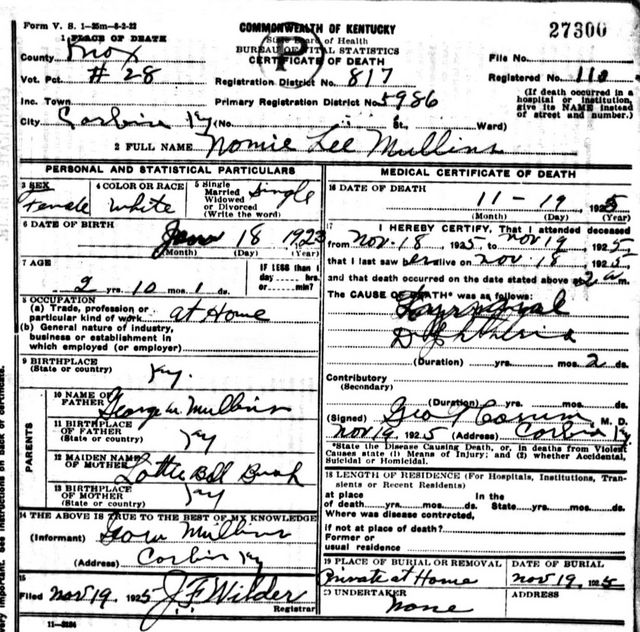 Form V. S. 1-35m-8-2-22
1 PLACE OF DEATH
County Knox
Vot. Pct. #28
Inc. Town
City Corbin Ky (No. St., Ward)
COMMONWEALTH OF KENTUCKY
State Board of Health
BUREAU OF VITAL STATISTICS
CERTIFICATE OF DEATH
P
Registration District No. 817
Primary Registration District No. 5986
27300
File No.
Registered No. 110
(If death occurred in a
hospital or institution,
give its NAME instead
of street and number.)
2 FULL NAME Nomie Lee Mullins
PERSONAL AND STATISTICAL PARTICULARS
3 SEX
Female
4 COLOR OR RACE
White
5 Single
Married
Widowed
or Divorced
(Write the word)
Single
6 DATE OF BIRTH
Jan 18 1923
(Month) (Day) (Year)
7 AGE
2 yrs. 10 mos. 1 ds.
IF LESS than 1
day---- hrs.
or---- min?
8 OCCUPATION
(a) Trade, profession or
particular kind of work at Home
(b) General nature of industry,
business or establishment in
which employed (or employer)
9 BIRTHPLACE
(State or country) Ky.
PARENTS
10 NAME OF
FATHER George W. Mullins
11 BIRTHPLACE
OF FATHER
(State or country) Ky
12 MAIDEN NAME
OF MOTHER Lottie Bell Bush
13 BIRTHPLACE
OF MOTHER
(State or country) Ky
14 THE ABOVE IS TRUE TO THE BEST OF MY KNOWLEDGE
(Informant) Mullins
(Address) Corbin Ky
15
Filed Nov 19, 1925 J. F. Wilder
Registrar
11-3184
MEDICAL CERTIFICATE OF DEATH
16 DATE OF DEATH
11-19, 1925
(Month) (Day) (Year)
17 I HEREBY CERTIFY, That I attended deceased
from Nov. 18, 1925, to Nov 19, 1925,
that I last saw her alive on Nov. 18, 1925,
and that death occurred on the date stated above at 2 a m.
The CAUSE OF DEATH* was as follows:
Laryngeal
Diphtheria
(Duration) yrs. mos. 2 ds.
Contributory
(Secondary)
(Duration) yrs. mos. ds.
(Signed) Geo M. D.
Nov 19, 1925 (Address) Corbin Ky
*State the Disease Causing Death, or, in deaths from Violent
Causes state (1) Means of Injury; and (2) whether Accidental,
Suicidal or Homicidal.
18 LENGTH OF RESIDENCE (For Hospitals, Institutions, Tran-
sients or Recent Residents)
at place In the
of death yrs. mos. ds. State yrs. mos. ds.
Where was disease contracted,
if not at place of death?
Former or
usual residence
19 PLACE OF BURIAL OR REMOVAL
Private at Home
DATE OF BURIAL
Nov 19, 1925
20 UNDERTAKER
none
ADDRESS